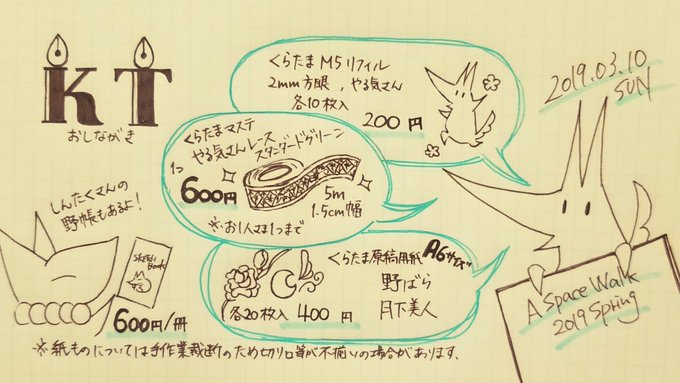 KT
おしながき
くらたま M5リフィル
2mm方眼、やる気さん
各10枚入
200円
2019.03.10
SUN
くらたまマステ
やる気さんレース
スタンダードグリーン
1つ
600円
5m
1.5cm幅
※お1人さま1つまで
しんたくさんの
野帳もあるよ!
Sketch
Book
600円/冊
くらたま原稿用紙 A6サイズ
野ばら
月下美人
各20枚入 400円
A Space Walk
2019 Spring
※紙ものについては手作業裁断のため切り口等が不揃いの場合があります、